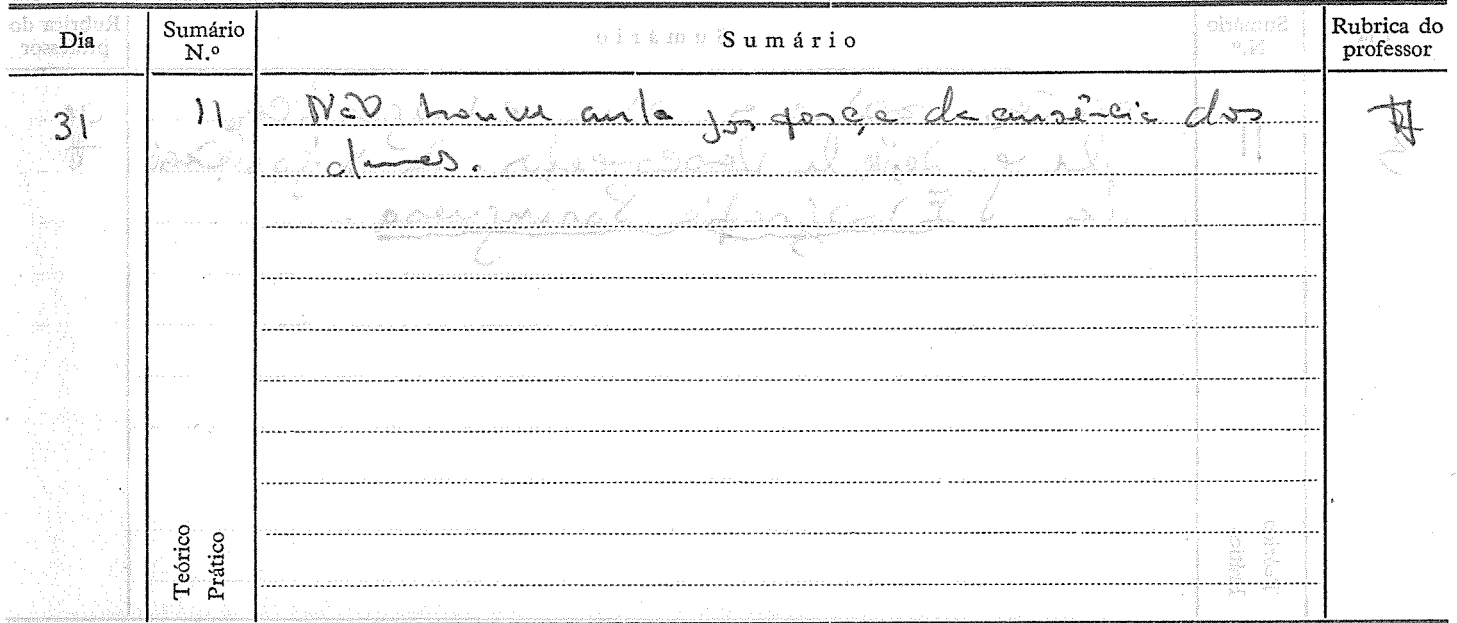 Dia
Sumário N.º
Sumário
Rubrica do professor
31
11
Não houve aula por força da ausência dos
alunos.
Teórico
Prático